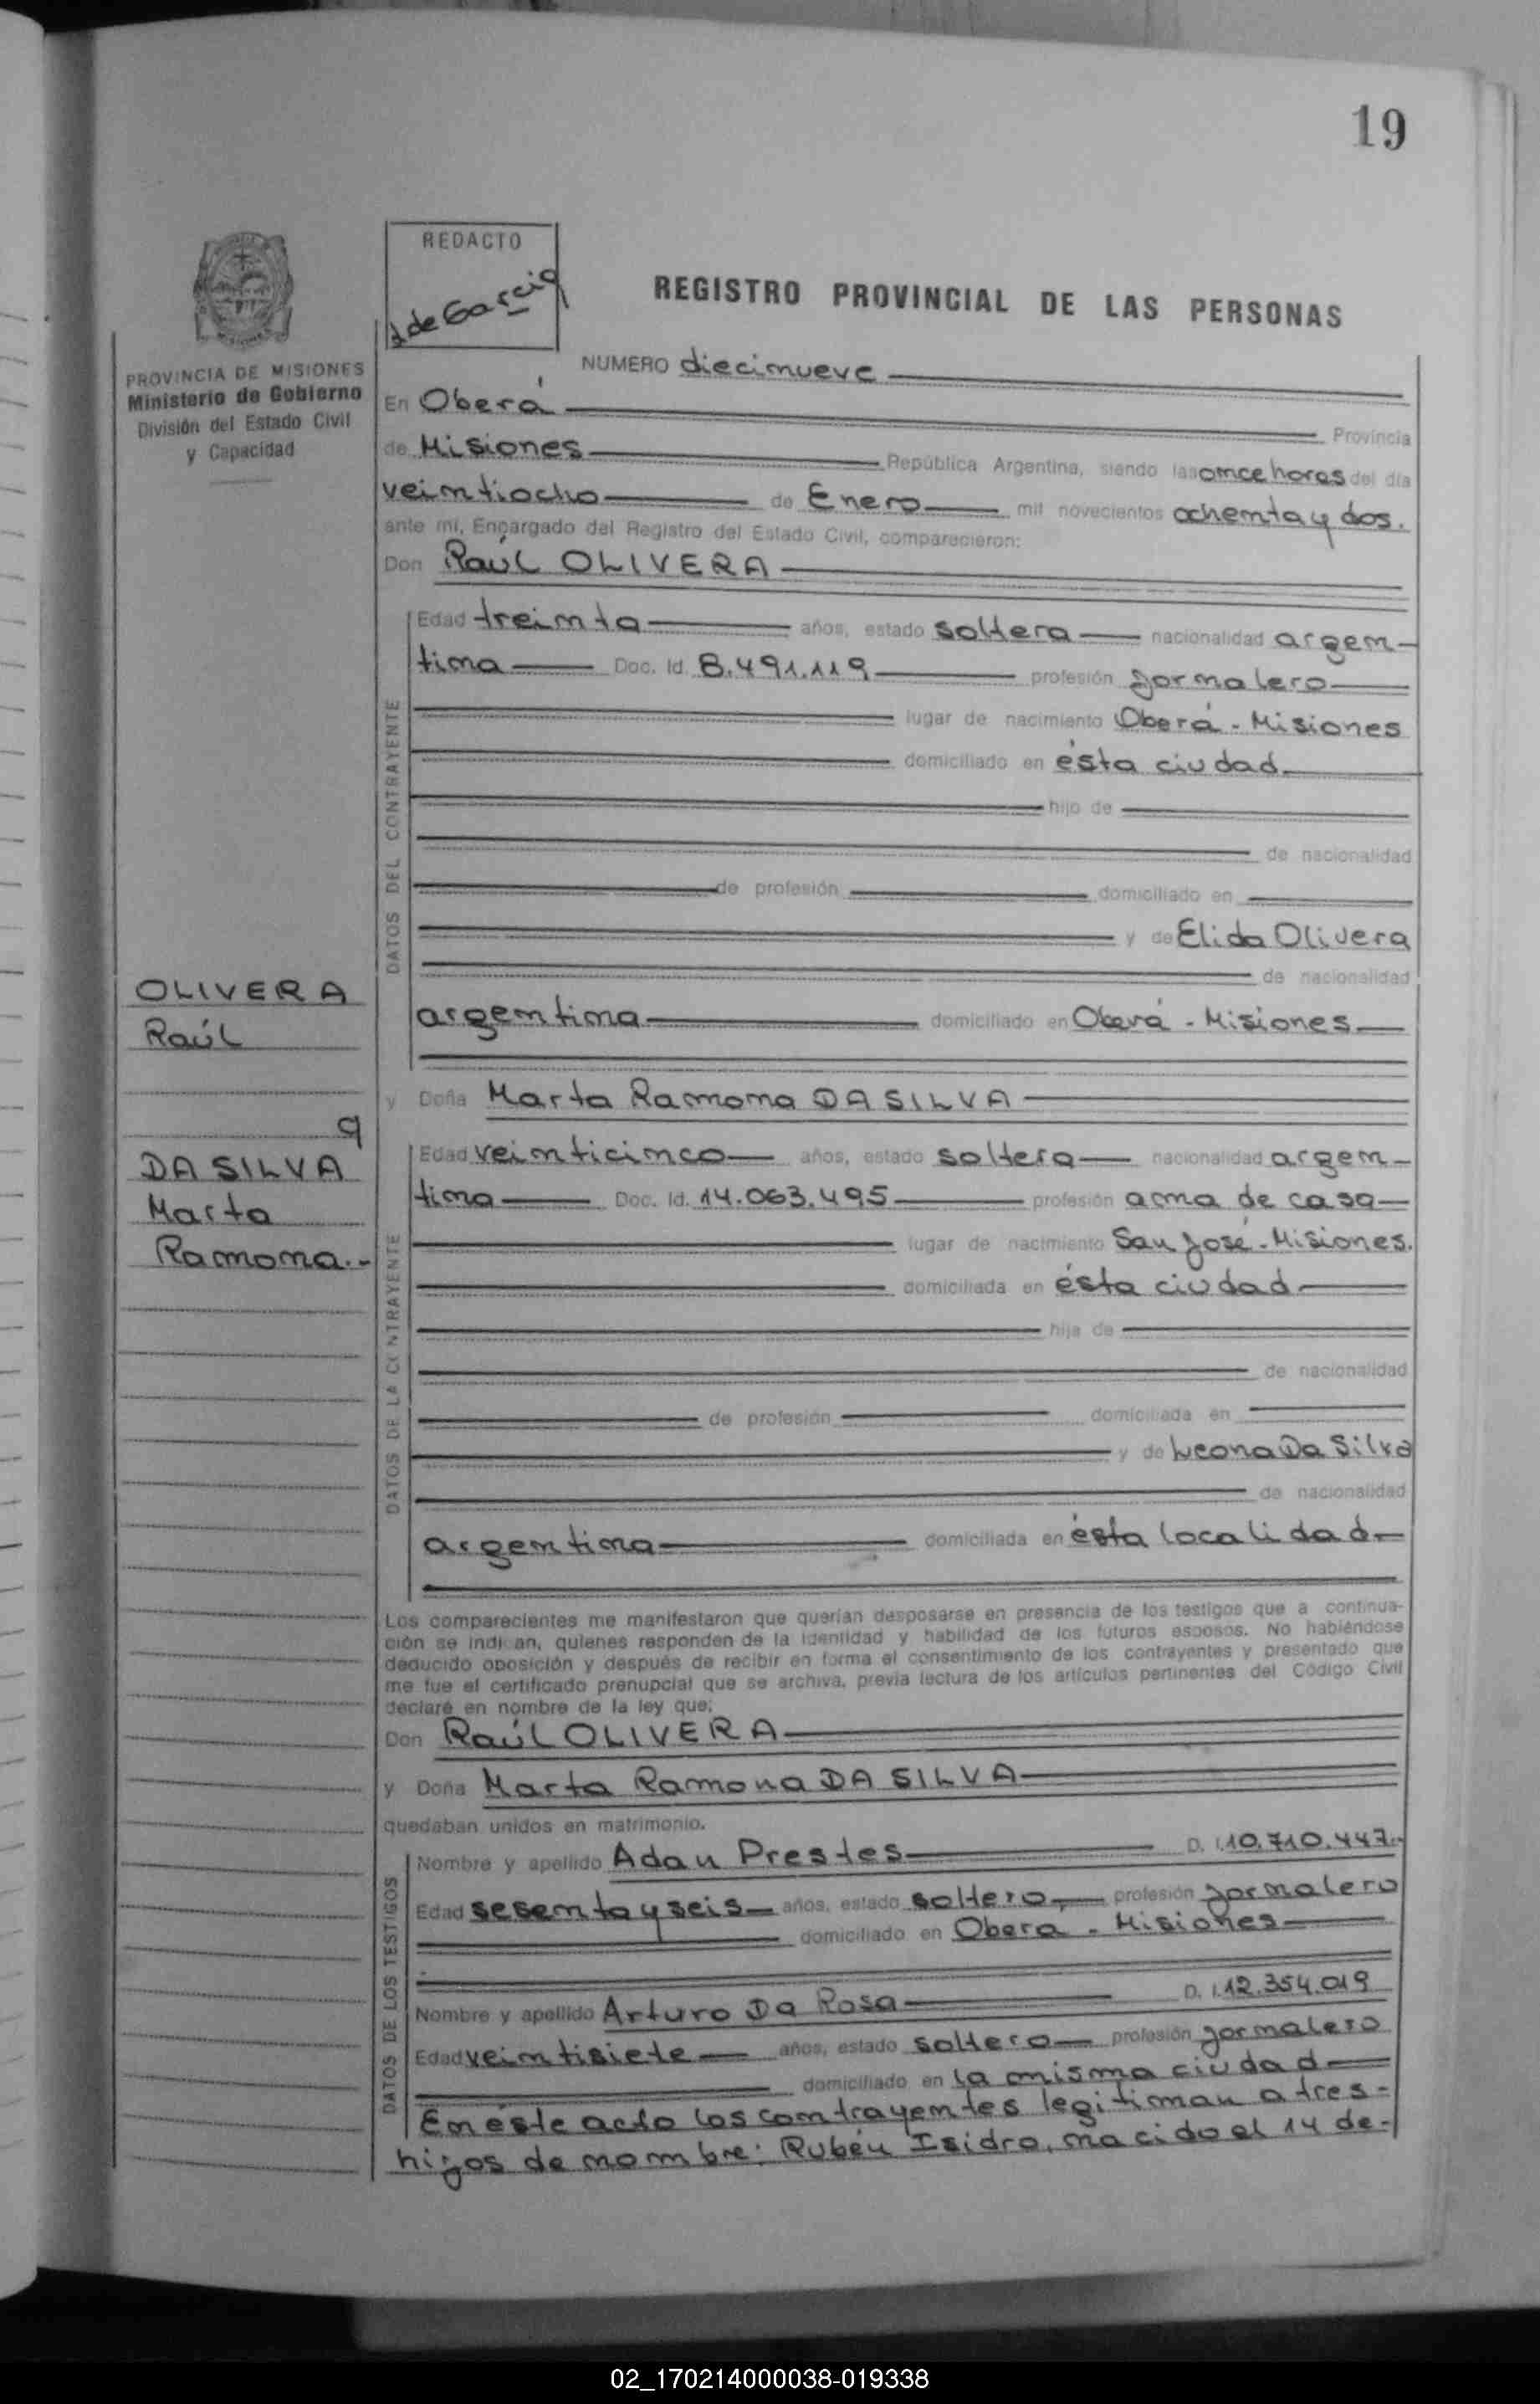 19
REDACTO
de Garcia
REGISTRO PROVINCIAL DE LAS PERSONAS
PROVINCIA DE MISIONES
Ministerio de Gobierno
División del Estado Civil
y Capacidad
NUMERO diecinueve
En Oberá
Provincia
de Misiones República Argentina, siendo las once horas del día
veintiocho de Enero mil novecientos ochenta y dos.
ante mí, Encargado del Registro del Estado Civil, comparecieron:
Don Raúl OLIVERA
DATOS DEL CONTRAYENTE
Edad treinta años, estado soltera nacionalidad argen-
tina Doc. Id. 8.491.119 profesión jornalero
lugar de nacimiento Oberá - Misiones
domiciliado en ésta ciudad
hijo de
de nacionalidad
de profesión domiciliado en
y de Elida Olivera
de nacionalidad
argentina domiciliado en Oberá - Misiones
OLIVERA
Raúl
y
DA SILVA
Marta
Ramona.-
y Doña Marta Ramona DA SILVA
DATOS DE LA CONTRAYENTE
Edad veinticinco años, estado soltera nacionalidad argen-
tina Doc. Id. 14.063.495 profesión ama de casa
lugar de nacimiento San José - Misiones.
domiciliada en ésta ciudad
hija de
de nacionalidad
de profesión domiciliada en
y de Leona Da Silva
de nacionalidad
argentina domiciliada en ésta localidad
Los comparecientes me manifestaron que querían desposarse en presencia de los testigos que a continua-
ción se indi an, quienes responden de la identidad y habilidad de los futuros esposos. No habiéndose
deducido oposición y después de recibir en forma el consentimiento de los contrayentes y presentado que
me fue el certificado prenupcial que se archiva, previa lectura de los artículos pertinentes del Código Civil
declaré en nombre de la ley que:
Don Raúl OLIVERA
y Doña Marta Ramona DA SILVA
quedaban unidos en matrimonio.
DATOS DE LOS TESTIGOS
Nombre y apellido Adan Prestes D. I. 10.710.447.-
Edad sesenta y seis años, estado soltero, profesión jornalero
domiciliado en Obera - Misiones
Nombre y apellido Arturo Da Rosa D. I. 12.354.019
Edad veintisiete años, estado soltero profesión jornalero
domiciliado en la misma ciudad
En éste acto los contrayentes legitiman a tres-
hijos de nombre: Rubén Isidro, nacido el 14 de-
02_170214000038-019338